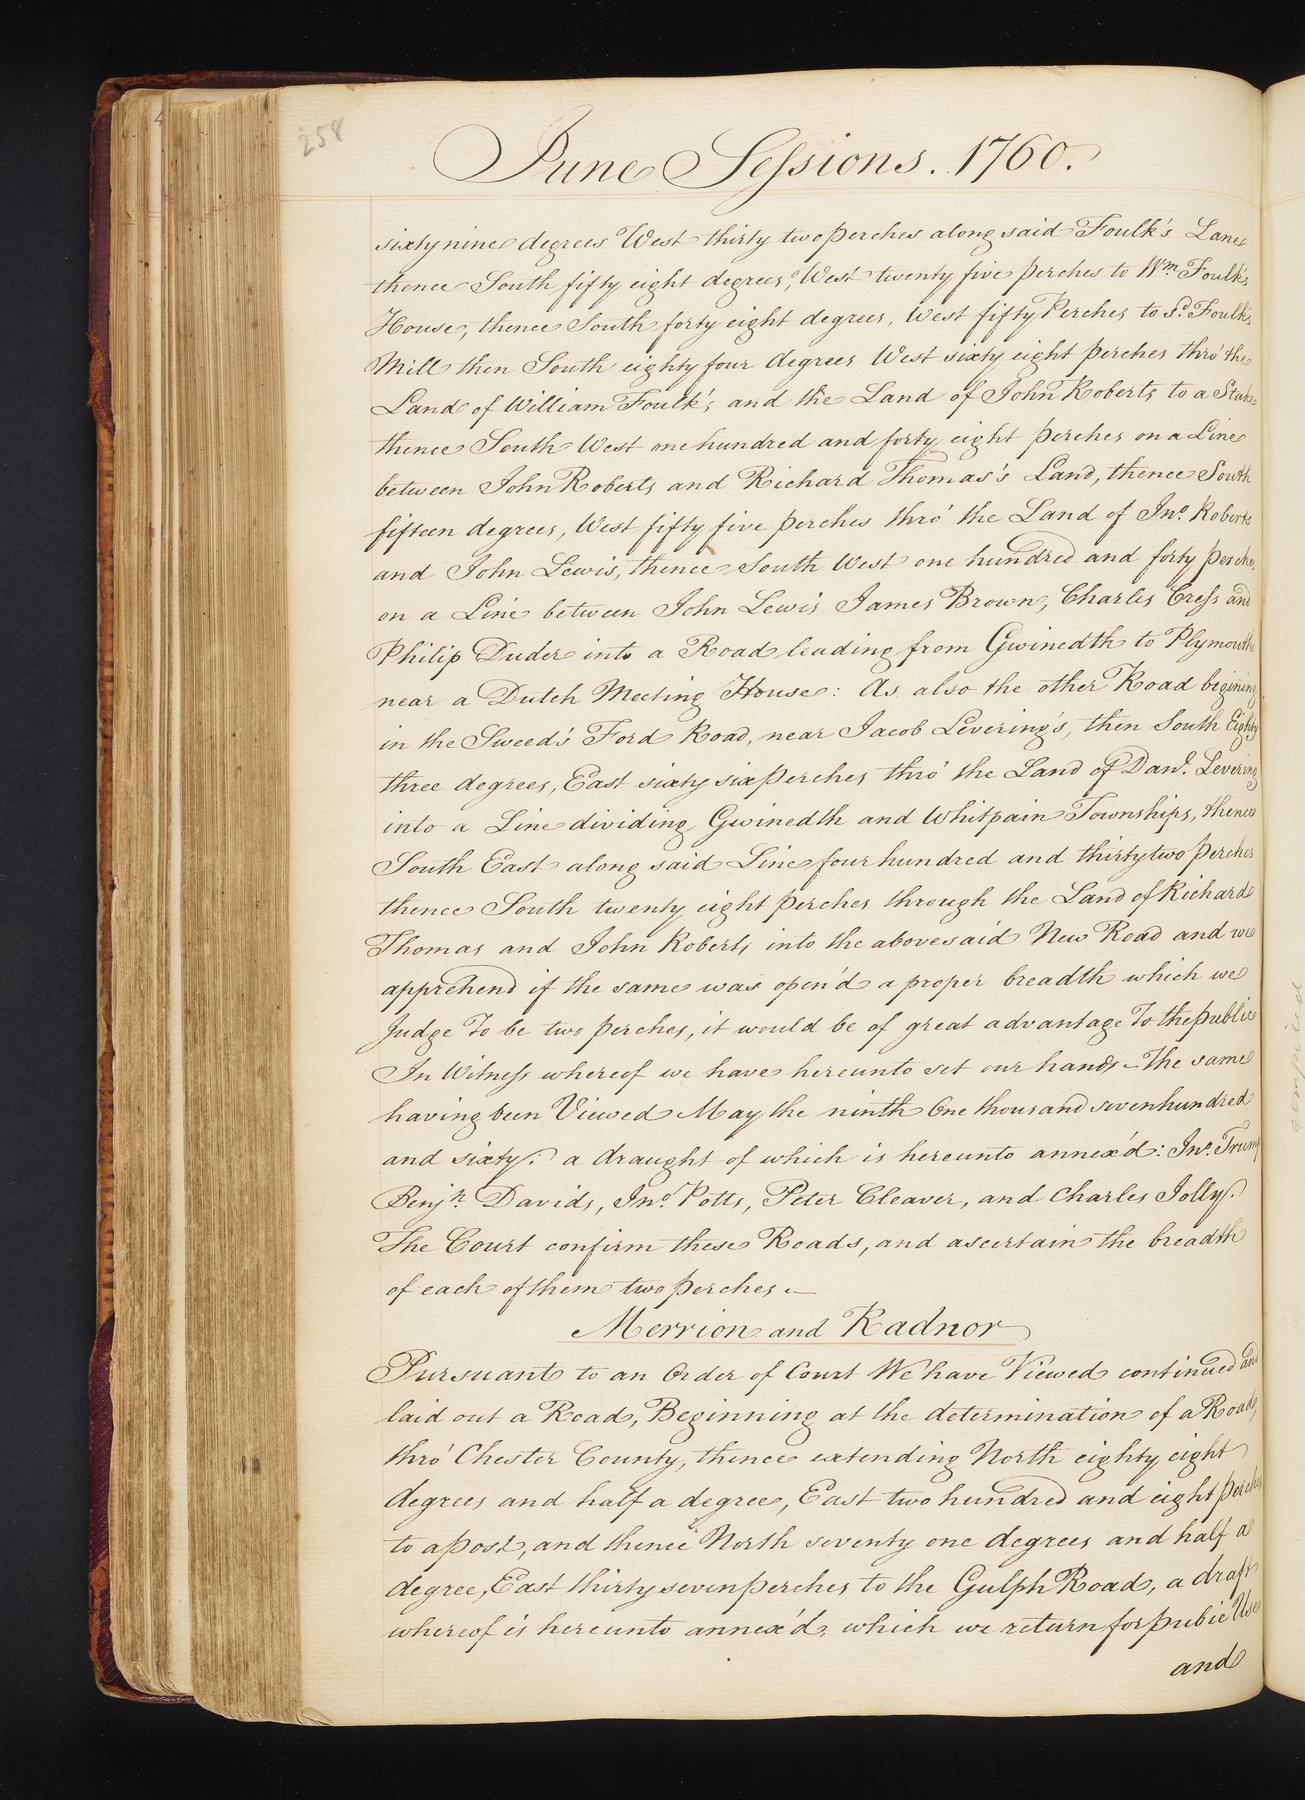 258
June Sessions. 1760.
sixty nine degrees West thirty two perches along said Foulk's Lane
thence South fifty eight degrees, West twenty five perches to Wm. Foulk's
House, thence South forty eight degrees, West fifty Perches to Sd. Foulk's
Mill then South eighty four degrees West sixty eight perches thro' the
Land of William Foulk's and the Land of John Roberts to a Stake
thence South West one hundred and forty eight perches on a Line
between John Roberts and Richard Thomas's Land, thence South
fifteen degrees, West fifty five perches thro' the Land of Jno. Roberts
and John Lewis, thence South West one hundred and forty perches
on a Line between John Lewis James Brown, Charles Cress and
Philip Duder into a Road leading from Gwinedth to Plymouth
near a Dutch Meeting House: As also the other Road begining
in the Sweed's Ford Road, near Jacob Levering's, then South Eighty
three degrees, East sixty six perches thro' the Land of Danl. Levering
into a Line dividing Gwinedth and Whitpain Townships, thence
South East along said Line four hundred and thirty two perches
thence South twenty eight perches through the Land of Richard
Thomas and John Roberts into the abovesaid New Road and we
apprehend if the same was open'd a proper breadth which we
Judge To be two perches, it would be of great advantage To the public
In Witness whereof we have hereunto set our hands - The same
having been Viewed May the ninth One thousand seven hundred
and sixty. a draught of which is hereunto annex'd: Jno. Trump
Benjn. Davids, Jno. Potts, Peter Cleaver, and Charles Jolly.
The Court confirm these Roads, and ascertain the breadth
of each of them two perches.
Merrion and Radnor
Pursuant to an Order of Court We have Viewed continued and
laid out a Road, Beginning at the determination of a Road,
thro' Chester County, thence extending North eighty eight
degrees and half a degree, East two hundred and eight perches
to a post, and thence North seventy one degrees and half a
degree, East thirty seven perches to the Gulph Road, a draft
whereof is hereunto annex'd, which we return for pubic Use
and
compiled